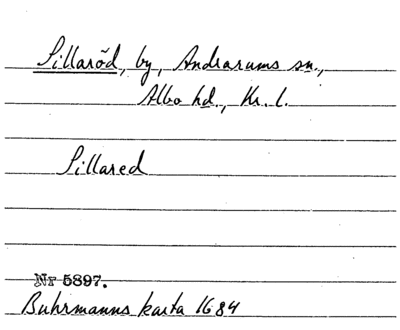 Sillaröd, by, Andrarums sn.,
Albo hd., Kr. l.
Sillared
Nr 5897.
Buhrmanns karta 1684